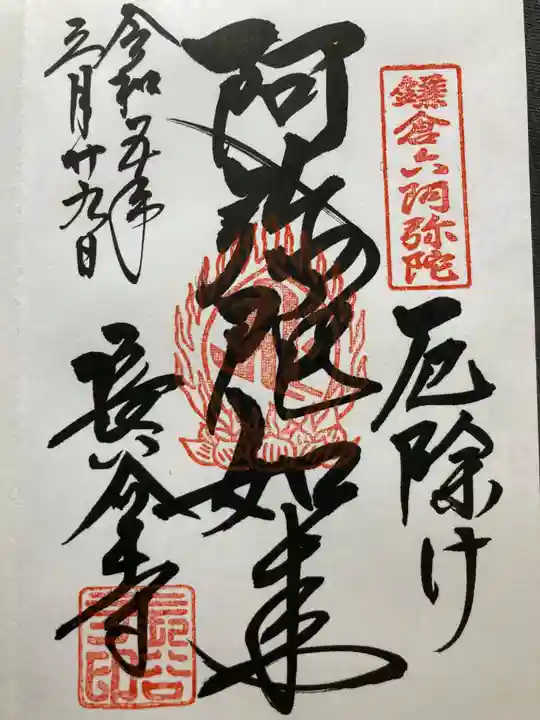 鎌倉六阿弥陀
厄除け
阿弥陀如来
長谷寺
令和五年
三月廿九日
長谷寺印